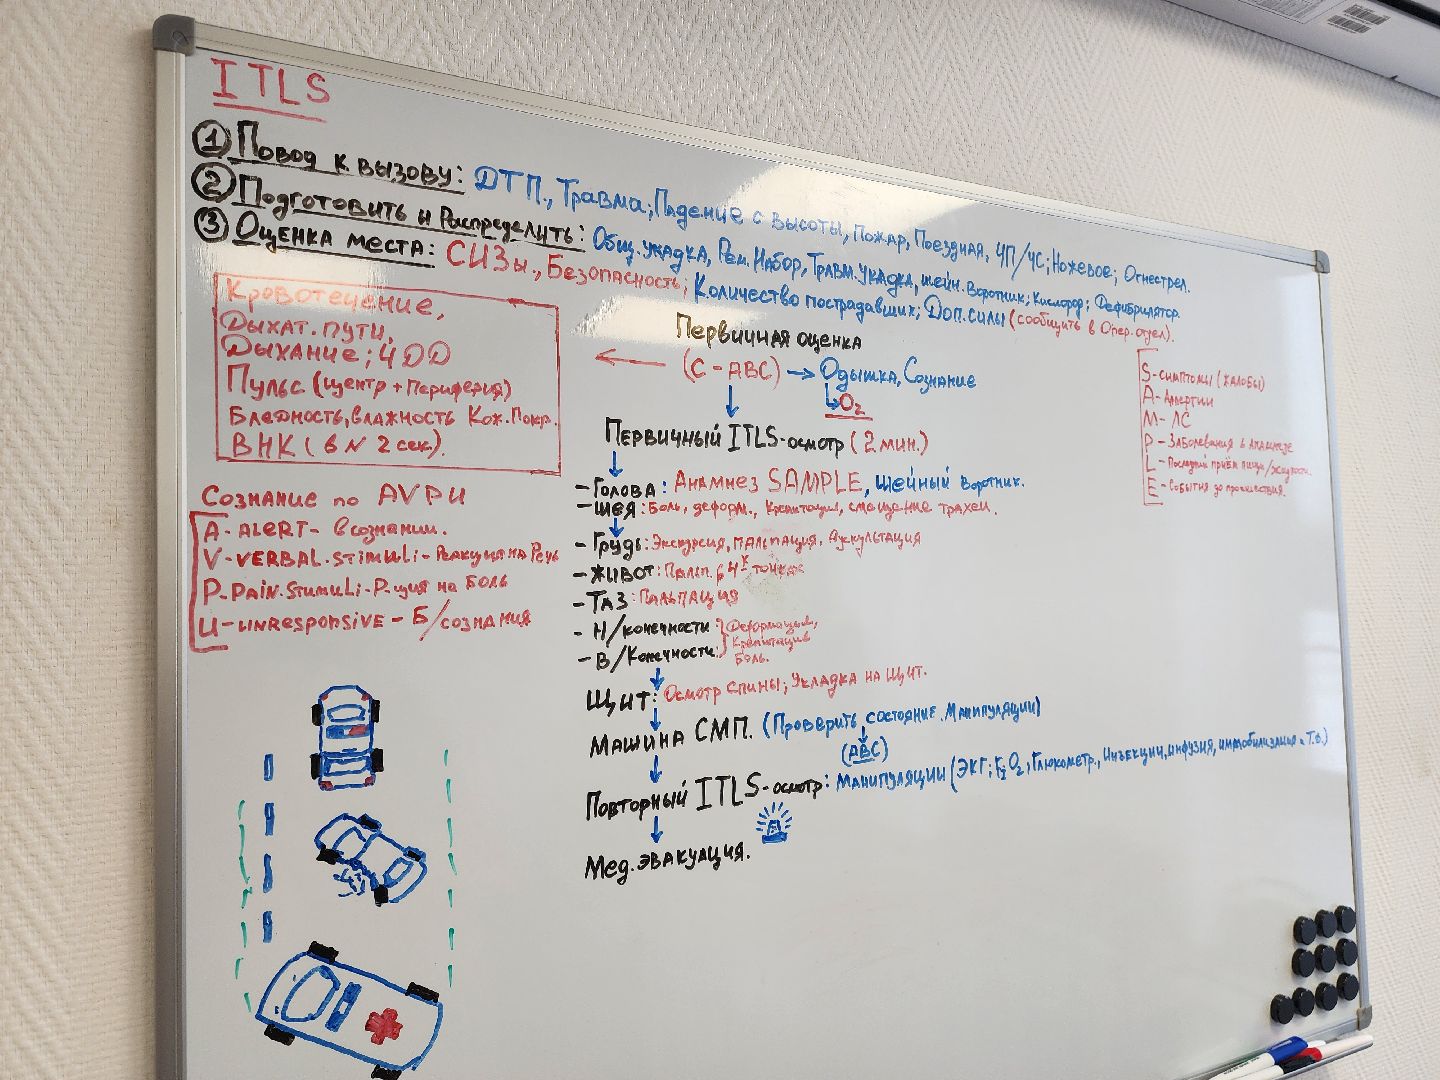 ITLS
① Повод к вызову: ДТП., Травма; Падение с высоты, Пожар, Поездная, ЧП/ЧС; Ножевое; Огнестрел.
② Подготовить и Распределить: Общ. укадка, Рем. Набор, Травм. укадка, шейн. Воротник; Кислород; Дефибрилятор.
③ Оценка места: СИЗы., Безопасность; Количество пострадавших; Доп. силы (сообщить в Опер. отдел).
Кровотечение,
Дыхат. пути,
Дыхание; ЧДД
Пульс (центр + Периферия)
Бледность, влажность Кож. Покр.
ВНК (в N 2 сек).
Сознание по AVPU
A - ALERT - в сознании.
V - VERBAL. STIMULI - Реакция на Речь
P - PAIN. STIMULI - Р-ция на Боль
U - UNRESPONSIVE - Б/сознания
Первичная оценка
(C - ABC) → Одышка, Сознание
O₂
Первичный ITLS - осмотр (2 мин.)
- Голова: Анамнез SAMPLE, шейный Воротник.
- Шея: Боль, деформ., Крепитация, смещение трахеи.
- Грудь: Экскурсия, пальпация, Аускультация
- Живот: Пальп. в 4х точках
- Таз: Пальпация
- Н/конечности: Деформация,
Крепитация
- В/Конечности: Боль.
Щит: Осмотр спины; Укладка на щит.
Машина СМП. (Проверить состояние. Манипуляции)
(ABC)
Повторный ITLS - осмотр: Манипуляции (ЭКГ; O₂, Глюкометр., Инъекции, инфузия, иммобилизация и т.д.)
Мед. эвакуация.
S - Симптомы (жалобы)
A - Аллергии
M - ЛС
P - Заболевания в Анамнезе
L - Последний приём пищи/жидкости.
E - События до проишествия.